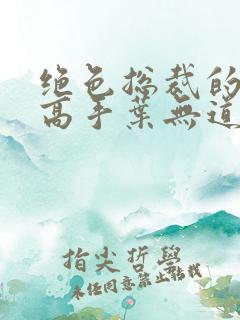 绝色总裁的
高手叶无道
指尖哲学
未经同意禁止转载